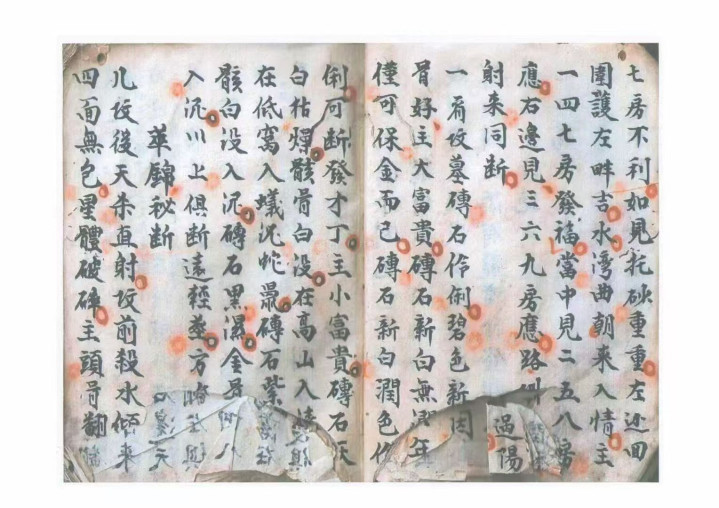 七房不利如見托砂重重左还回
圍護左畔吉水湾曲朝来入情主
一四七房發福當中見二五八房
應右邉見三六九房應路
過陽
射来同断
一看坟墓磚石伶俐碧色新润
骨好主大富貴磚石新白無润年
僅可保金而已磚石新白潤色
俐可断發才丁主小富貴磚石灰
白枯燥骸骨白没在高山入
在低窩入蟻泥蛇鼠磚石紫
骸白没入泥磚石黑濕金骨
入沉川上俱断遠輕
華錦秘断
凢坟後天朱直射坟前殺水傾来
四面無包星體破碎主頭骨翻